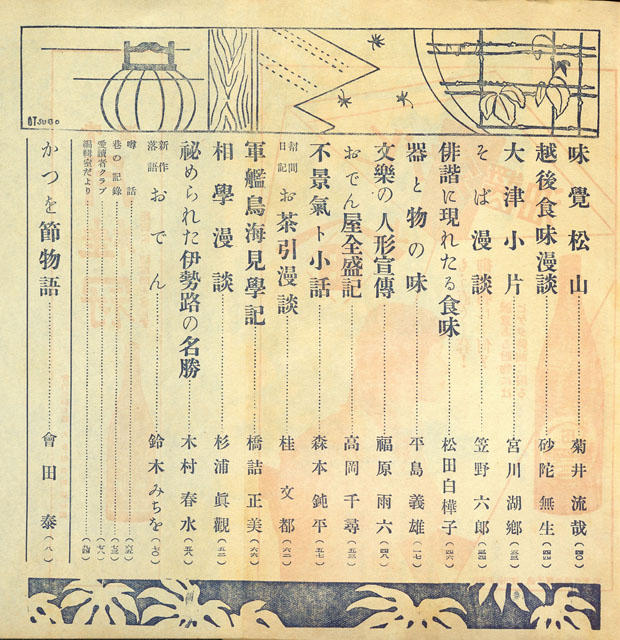 OTSUBO
味覺松山………菊井流哉(四〇)
越後食味漫談………砂陀無生(四四)
大津小片………宮川湖鄕
そば漫談………笠野六郎
俳諧に現れたる食味………松田白樺子(四六)
器と物の味………平島義雄(一七)
文樂の人形宣傳………福原雨六(四八)
おでん屋全盛記………高岡千尋(五三)
不景氣ト小話………森本鈍平(五七)
幇間日記 お茶引漫談………桂文都(六二)
軍艦鳥海見學記………橋詰正美(六六)
相學漫談………杉浦眞觀(五二)
祕められた伊勢路の名勝………木村春水(五八)
新作落語 おでん………鈴木みちを(七〇)
噂話………
巷の記錄………
愛讀者クラブ………
編輯室だより………
かつを節物語………會田泰(八)